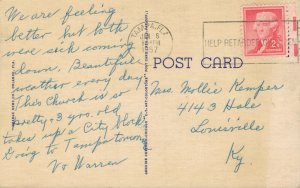 We are feeling
better but both
were sick coming
down. Beautiful
weather every day
This Church is so
pretty & 3 yrs. old
takes up a City block
Going to Tampa tomorrow
Vo Warren
TAMPA, FLA.
JAN
PM
HELP RETARDED
2¢
POST CARD
Mrs. Mollie Kemper
4143 Hale
Louisville
Ky.